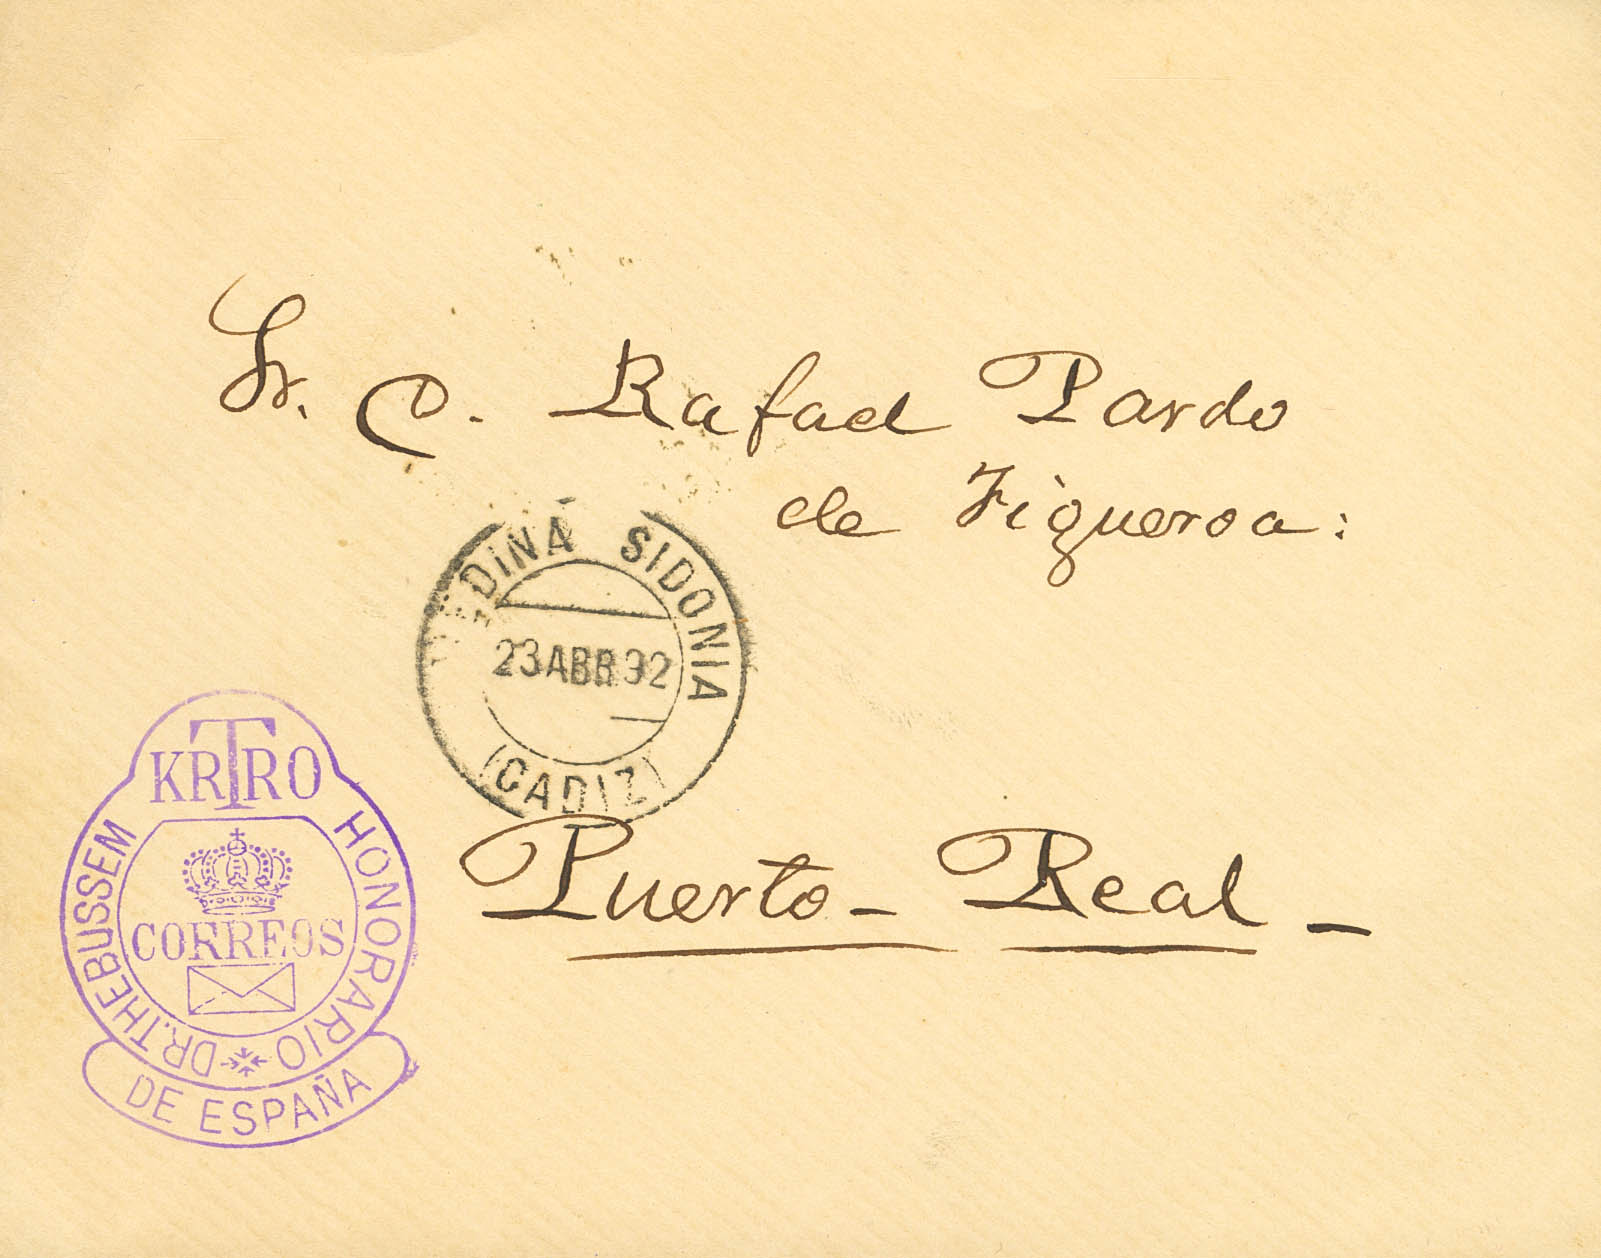 Sr. D. Rafael Pardo
de Figueroa:
MEDINA SIDONIA
23 ABR 92
(CADIZ)
Puerto-Real-
KRTRO
DR. THEBUSSEM HONORARIO
CORREOS
DE ESPAÑA